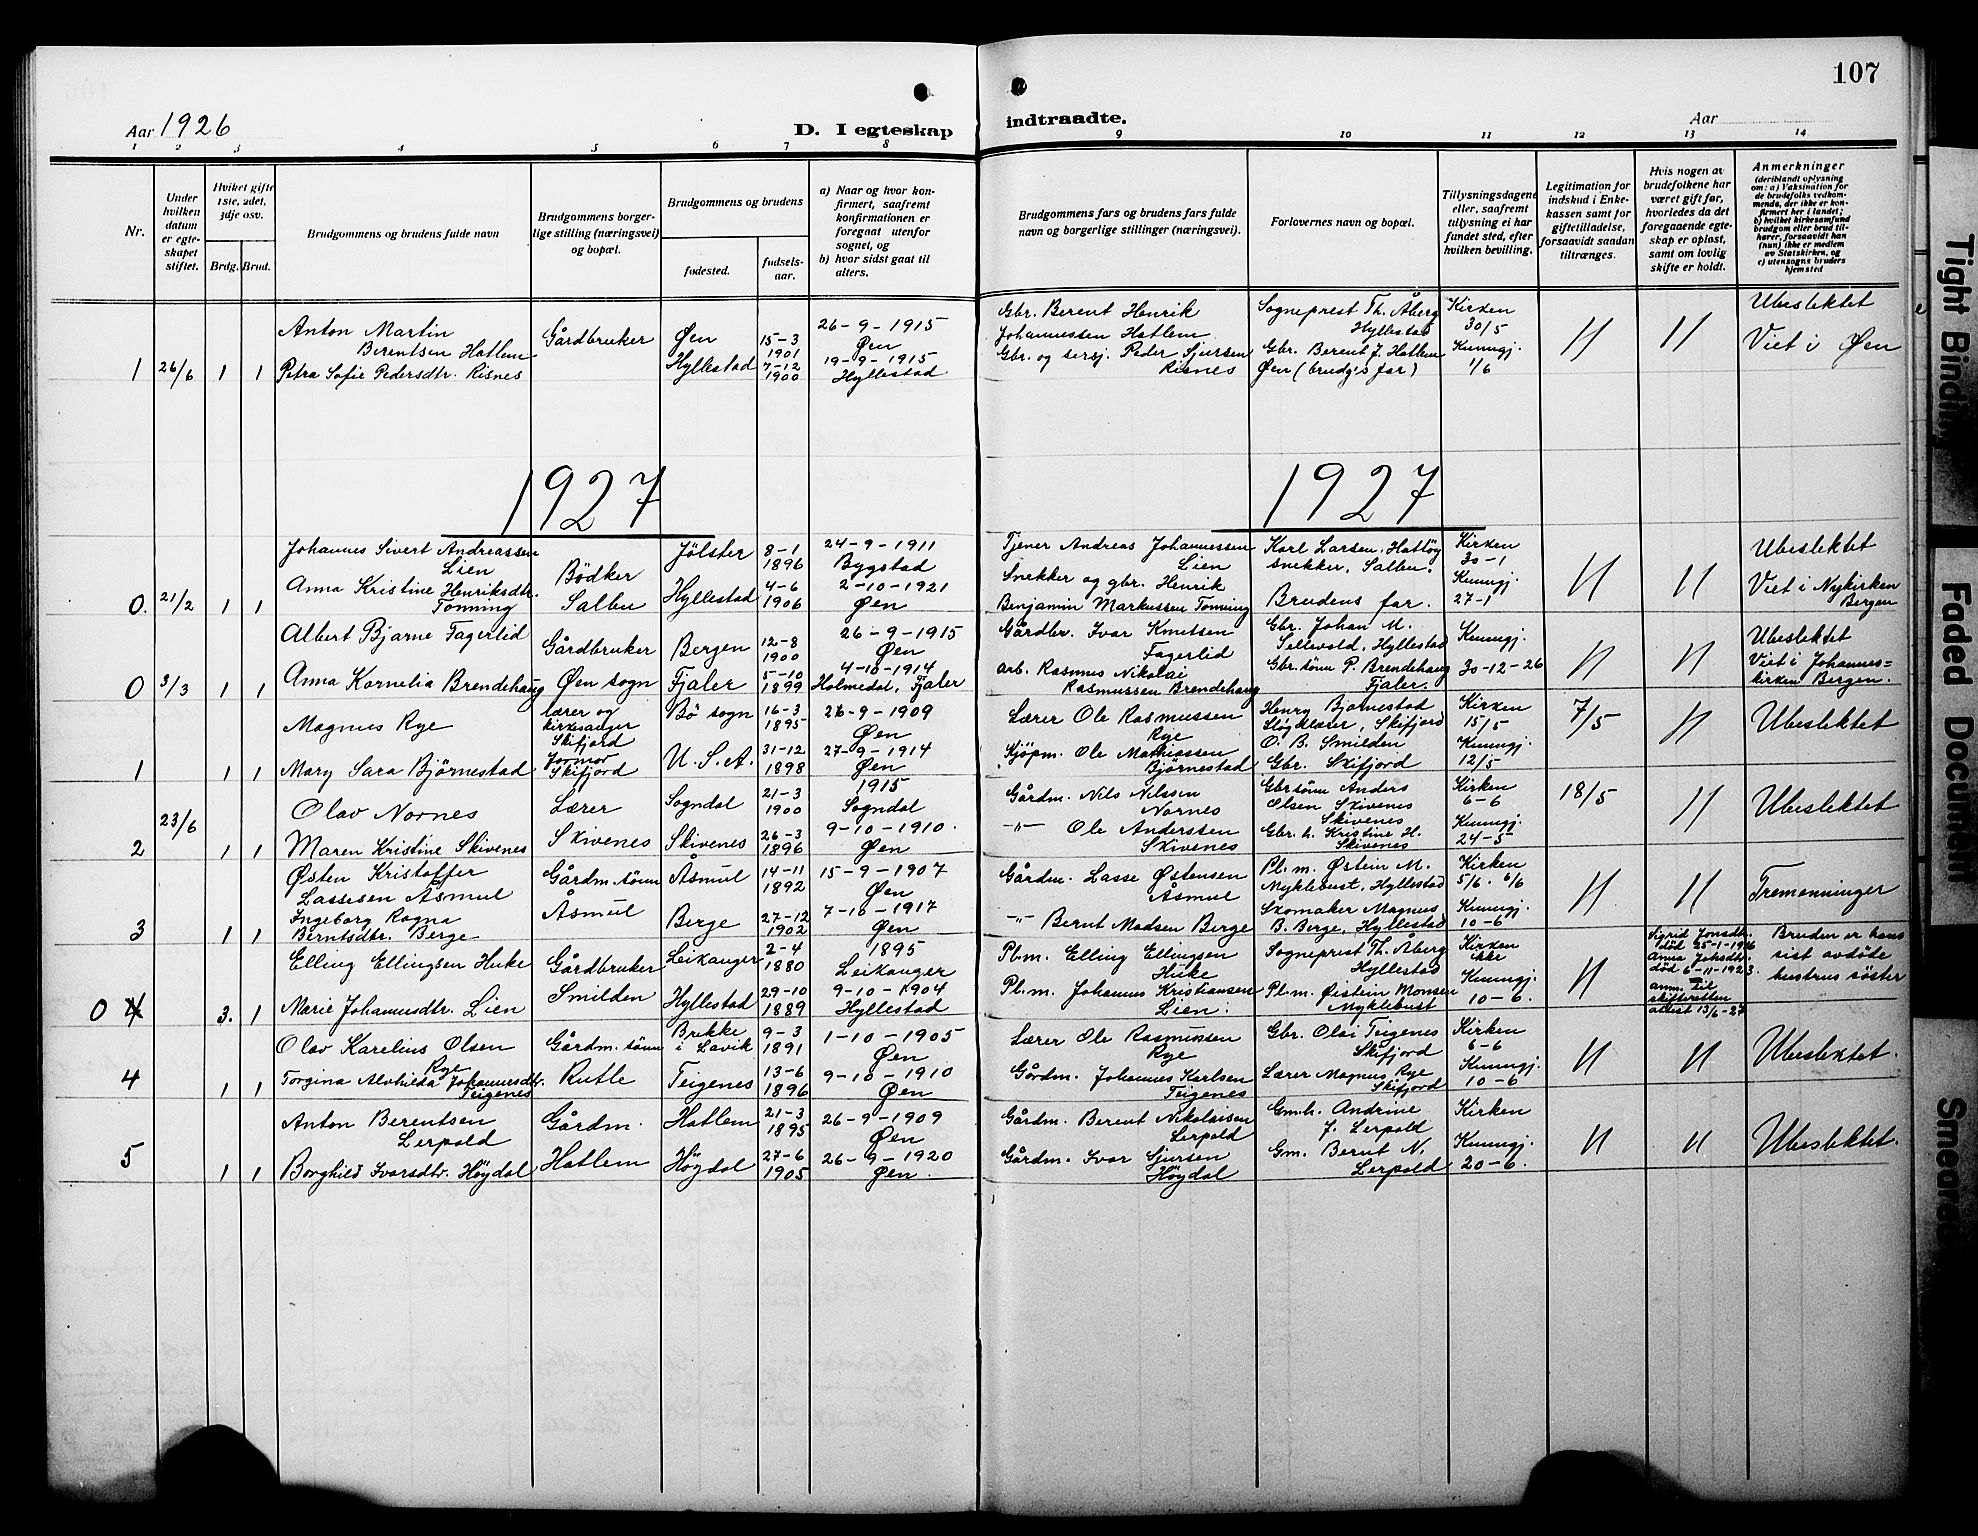 107
Aar 1926
D. I egteskap
indtraadte.
Aar
1 2 3 4 5 6 7 8
9 10 11 12 13 14
Nr.
Under hvilken datum er egteskapet stiftet.
Hvilket gifte 1ste, 2det, 3dje osv.
Brdg. Brud.
Brudgommens og brudens fulde navn
Brudgommens borgerlige stilling (næringsvei) og bopæl.
Brudgommens og brudens
fødested.
fødselsaar.
a) Naar og hvor konfirmert, saafremt konfirmationen er foregaat utenfor sognet, og
b) hvor sidst gaat til alters.
Brudgommens fars og brudens fars fulde navn og borgerlige stillinger (næringsvei).
Forlovernes navn og bopæl.
Tillysningsdagene eller, saafremt tillysning ei har fundet sted, efter hvilken bevilling.
Legitimation for indskud i Enkekassen samt for giftetilladelse, forsaavidt saadan tiltrænges.
Hvis nogen av brudefolkene har været gift før, hvorledes da det foregaaende egteskap er opløst, samt om lovlig skifte er holdt.
Anmerkninger
(deriblandt oplysning om: a) Vaksination for de brudefolks vedkommende, der ikke er konfirmert her i landet; b) hvilket kirkesamfund brudgom eller brud tilhører, forsaavidt han (hun) ikke er medlem av Statskirken, og c) utensogns bruders hjemsted
1 26/6 1 1
Anton Martin Berentsen Hatlem
Petra Sofie Pedersdtr. Risnes
Gårdbruker
Øen 15-3 1901 26-9-1915 Øen
Hyllestad 7-12 1900 19-9-1915 Hyllestad
Gbr. Berent Henrik Johannessen Hatlem
Gbr. og sersj. Peder Sjursen Risnes
Sogneprest Th. Åberg Hyllestad
Gbr. Berent J. Hatlem Øen (brudg's far)
Kirken 30/5
Kunngj. 1/6
〃 〃
Ubeslektet
Viet i Øen
1927
1927
0. 21/2 1 1
Johannes Sivert Andreassen Lien
Anna Kristine Henriksdtr. Tonning
Bödker
Salbu
Jölster 8-1 1896 24-9-1911 Bygstad
Hyllestad 4-6 1906 2-10-1921 Øen
Tjener Andreas Johannessen Lien
Snekker og gbr. Henrik Benjamin Markussen Tonning
Karl Larsen, Hatlöy snekker, Salbu.
Brudens far.
Kirken 30-1
Kunngj. 27-1
〃 〃
Ubeslektet
Viet i Nykirken Bergen
0 3/3 1 1
Albert Bjarne Fagerlid
Anna Kornelia Brendehaug
Gårdbruker
Øen sogn
Bergen 12-8 1900 26-9-1915 Øen
Fjaler 5-10 1899 4-10-1914 Holmedal, Fjaler
Gårdbr. Ivar Knutsen Fagerlid
arb. Rasmus Nikolai Rasmussen Brendehaug
Gbr. Johan M. Sellevold, Hyllestad
Gbr. sønn P. Brendehaug Fjaler.
Kunngj.
30-12-26
〃 〃
Ubeslektet
Viet i Johannes=kirken Bergen.
1 1 1
Magnus Rye
Mary Sara Björnestad
lærer og kirkesanger Skifjord
Jormor Skifjord
Bø sogn 16-3 1895 26-9-1909 Øen
U.S.A. 31-12 1898 27-9-1914 Øen
Lærer Ole Rasmussen Rye
Kjöpm. Ole Mathiassen Björnestad
Henry Bjørnestad Slöjdlærer, Skifjord
O. B. Smilden Gbr. Skifjord
Kirken 15/5
Kunngj. 12/5
7/5 〃
Ubeslektet
2 23/6 1 1
Olav Nornes
Maren Kristine Skivenes
Lærer
Skivenes
Sogndal 21-3 1900 1915 Sogndal
Skivenes 26-3 1896 9-10-1910. Øen
Gårdm. Nils Nilssen Nornes
-〃- Ole Anderssen Skivenes
Gbr sönn Anders Olsen Skivenes Skivenes
Gbr. h. Kristine H. Skivenes
Kirken 6-6
Kunngj. 24-5
18/5 〃
Ubeslektet
3 1 1
Østen Kristoffer Lassesen Åsmul
Ingeborg Ragna Berntsdtr. Berge
Gårdm. sönn
Åsmul
Åsmul 14-11 1892 15-9-1907 Øen
Berge 27-12 1902 7-10-1917 Øen
Gårdm. Lasse Østensen Åsmul
-〃- Bernt Madsen Berge
Pl. m. Østein M. Myklebust, Hyllestad
Skomaker Magnus B. Berge, Hyllestad
Kirken 5/6. 6/6
Kunngj. 10-6
〃 〃
Tremenninger
0 4 3. 1
Elling Ellingsen Huke
Marie Johannesdtr. Lien
Gårdbruker
Smilden
Leikanger 2-4 1880 1895 Leikanger
Hyllestad 29-10 1889 9-10-1904 Hyllestad
Pl.m. Elling Ellingsen Huke
Pl.m. Johannes Kristiansen Lien.
Sogneprest Th. Åberg Hyllestad
Pl.m. Øistein Monsen Myklebust
Kirken ikke
Kunngj. 10-6.
〃
Sigrid Jonsdtr. död 25-1-1916
Anna Johsdtr. död 6-11-1923.
anm. til skifteretten attest 13/6-27
Bruden er hans sist avdöde hustrus söster
4 1 1
Olav Karelius Olsen Rye
Torgina Alvhilda Johannesdtr. Teigenes
Gårdm. sönn
Rutle
Brekke i Lavik 9-3 1891 1-10-1905 Øen
Teigenes 13-6 1896 9-10-1910 Øen
Lærer Ole Rasmussen Rye
Gårdm. Johannes Karlsen Teigenes
Gbr. Olai Teigenes Skifjord
Lærer Magnus Rye Skifjord
Kirken 6-6
Kunngj. 10-6
〃 〃
Ubeslektet.
5 1 1
Anton Berentsen Lerpold
Borghild Ivarsdtr. Höydal
Gårdm.
Hatlem
Hatlem 21-3 1895 26-9-1909 Øen
Höydal 27-6 1905 26-9-1920 Øen.
Gårdm. Berent Nikolaisen Lerpold
Gårdm. Ivar Sjursen Höydal
Gm.h. Andrine J. Lerpold
Gm. Berent N. Lerpold
Kirken
Kunngj. 20-6.
〃 〃
Ubeslektet.
Tight Binding
Faded Document
Smeared